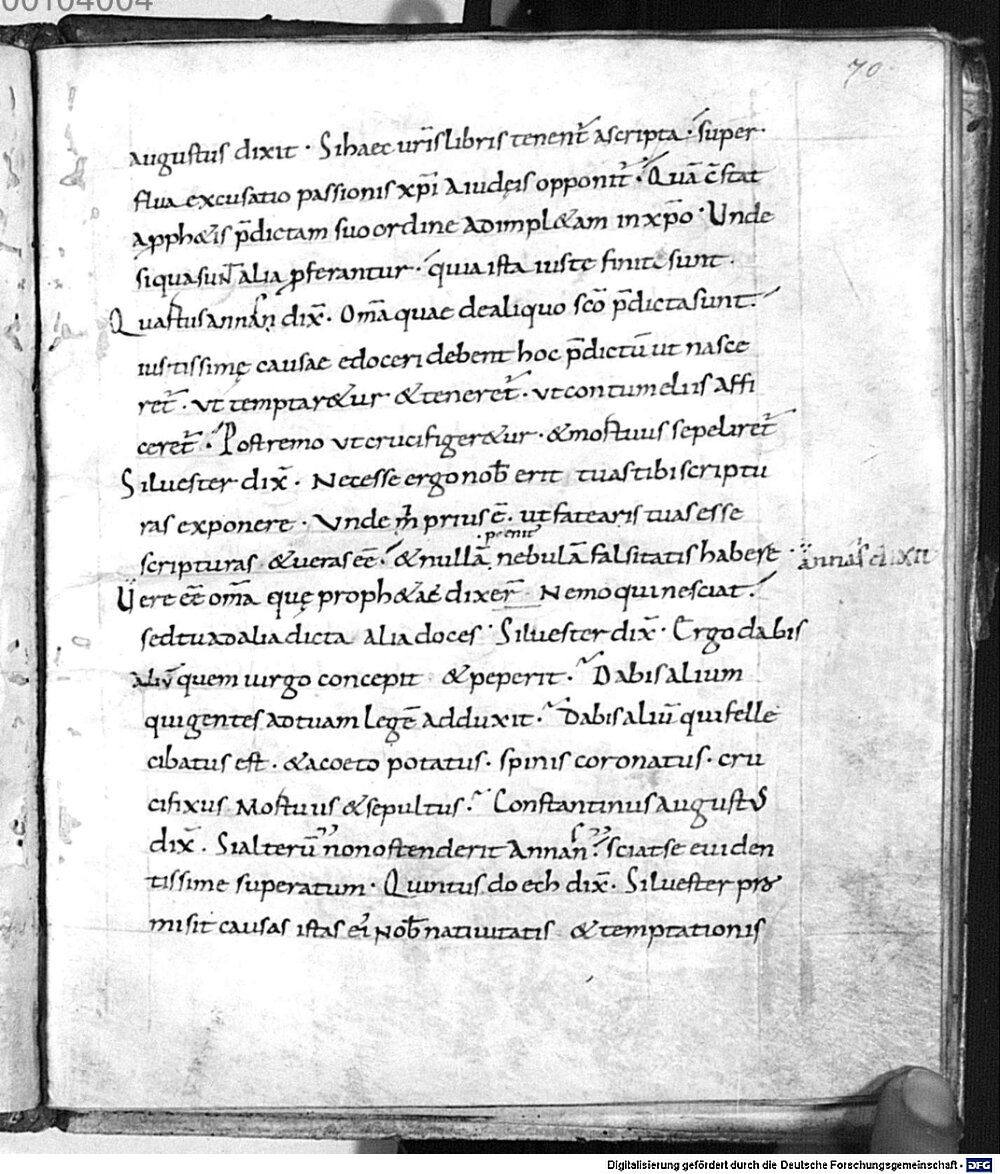 00104004
70
augustus dixit · Si haec ur̄is libris tenent̄ ascripta · super·
flua excusatio passionis xp̄i a iudęis opponit̄ · Quā c̄stat
a pph&is p̄dictam suo ordine adimpl&am in xp̄o · Unde
si qua sunt alia ꝓferantur · quia ista iuste finite sunt ·
Quartus annan dix̄ · Om̄a quae de aliquo sc̄o p̄dicta sunt ·
iustissimę causae edoceri debent hoc p̄dictū ut nasce
ret̄ · ut temptar&ur · & teneret̄ · ut contumeliis affi
ceret̄ · Postremo ut crucifiger&ur · & mortuus sepeliret̄
Siluester dix̄ · Necesse ergo nob̄ erit tuas tibi scriptu
ras exponere · Unde m̄ prius ē · ut fatearis tuas esse
scripturas & ueras eē · & nullā nebulā falsitatis habere · annas dixit
Uere eē om̄a quę proph&ae dixer̄ Nemo qui nesciat ·
sed tu ad alia dicta alia doces · Siluester dix̄ · Ergo dabis
aliū quem uirgo concepit & peperit · Dabis alium
qui gentes ad tuam legē adduxit · Dabis aliū qui felle
cibatus est · & acoeto potatus · spinis coronatus · cru
cifixus mortuus & sepultus · Constantinus augustus
dix̄ · Si alterū non ostenderit annan · sciat se euiden
tissime superatum · Quintus doech dix̄ · Siluester pro
misit causas istas ei nob̄ natiuitatis & temptationis
Digitalisierung gefördert durch die Deutsche Forschungsgemeinschaft - DFG